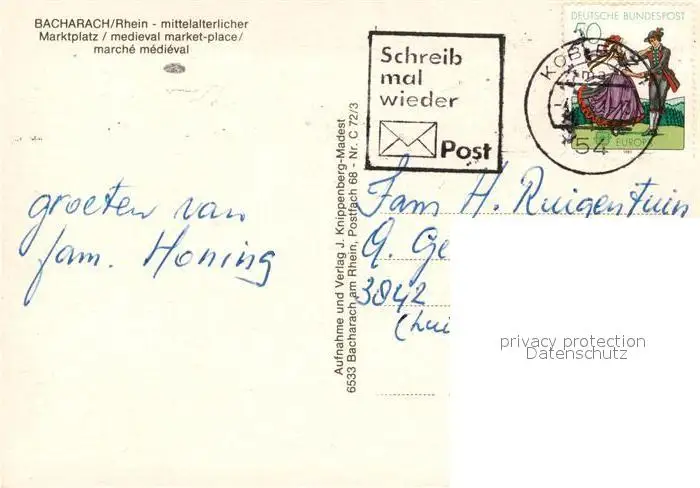 BACHARACH/Rhein - mittelalterlicher
Marktplatz / medieval market-place/
marché médiéval
Schreib
mal
wieder
Post
DEUTSCHE BUNDESPOST
50
KOBLENZ
54
EUROPA
1981
groeten van
fam. Honing
Aufnahme und Verlag J. Knippenberg-Madest
6533 Bacharach am Rhein, Postfach 68 - Nr. C 72/3
Fam H. Ruigentuin
3842
privacy protection
Datenschutz